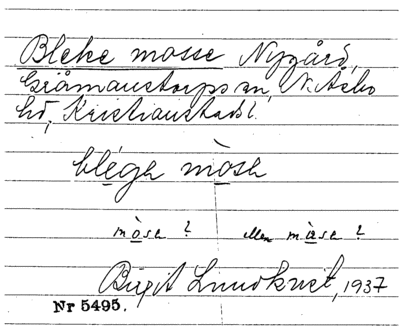 Bleke mosse Nygård,
Gråmanstorps sn, N. Åsbo
hd, Kristianstads l.
blégə mòsə
mòsə ? eller mɑ̀sə ?
Birgit Lundkvist, 1937
Nr 5495.